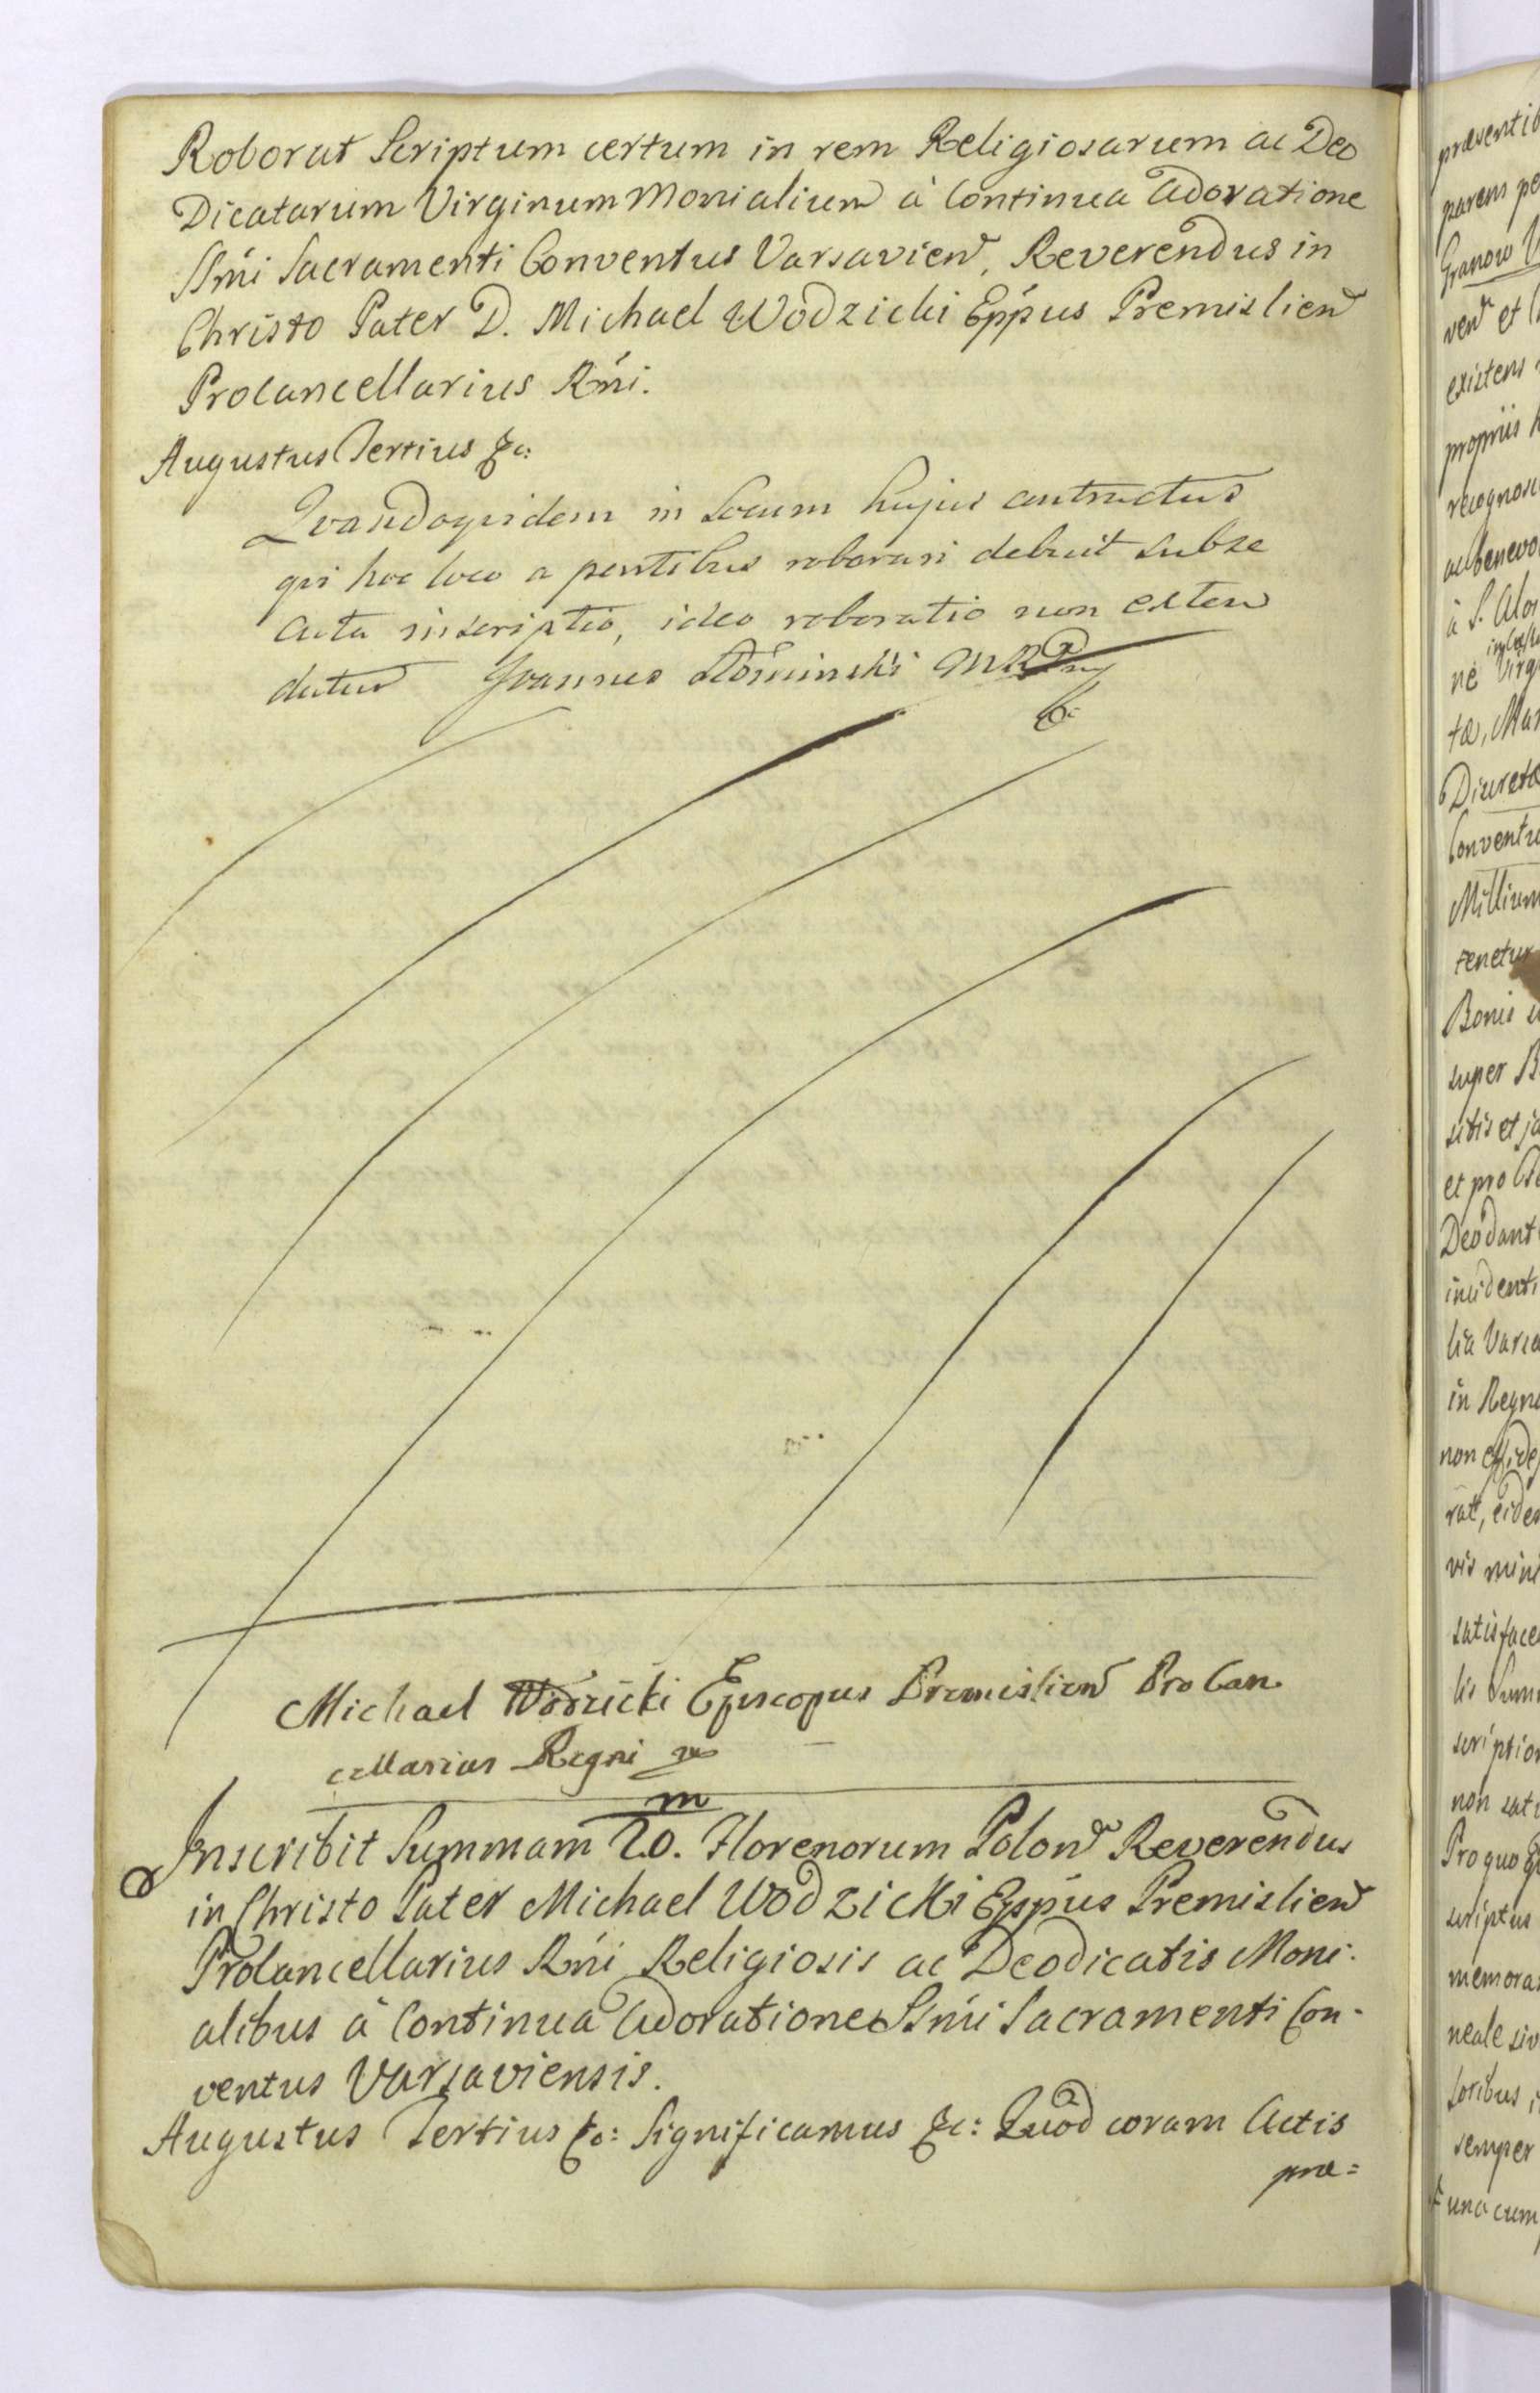 Roborat Scriptum certum in rem Religiosarum ac Deo
Dicatarum Virginum Monialium à Continua Adoratione
SSmi Sacramenti Conventus Varsavien, Reverendus in
Christo Pater D. Michael Wodzicki Eppus Premislien
Procancellarius Rni.
Augustus Tertius &c:
Quandoquidem in Locum hujus contractus
qui hoc loco a partibus roborari debuit subse
cuta inscriptio, ideo roboratio non exten
ditur Joannes
Michael Wodzicki Episcopus Premislien ProCan
cellarius Regni
Inscribit Summam 20. m Florenorum Polon Reverendus
in Christo Pater Michael Wodzicki Eppus Premislien
Procancellarius Rni Religiosis ac Deodicatis Moni-
alibus à Continua Adoratione SSmi Sacramenti Con-
ventus Varsaviensis.
Augustus Tertius &c: Significamus &c: Quod coram Actis
præ=
præsentib
parens pe
Granow
ven et
existens
propriis
recognosc
ac benevo
à S.
ne Virg
tæ, Mar
Discretæ
Conventu
Millium
tenetur
Bonis
super B
sitis et ja
et pro
Deodant
incident
lia Varsa
in Regno
non
eide
vis mini
satisface
lis Summ
scription
non sat
Pro quo
scriptus
memora
neale siv
soribus
semper
una cum